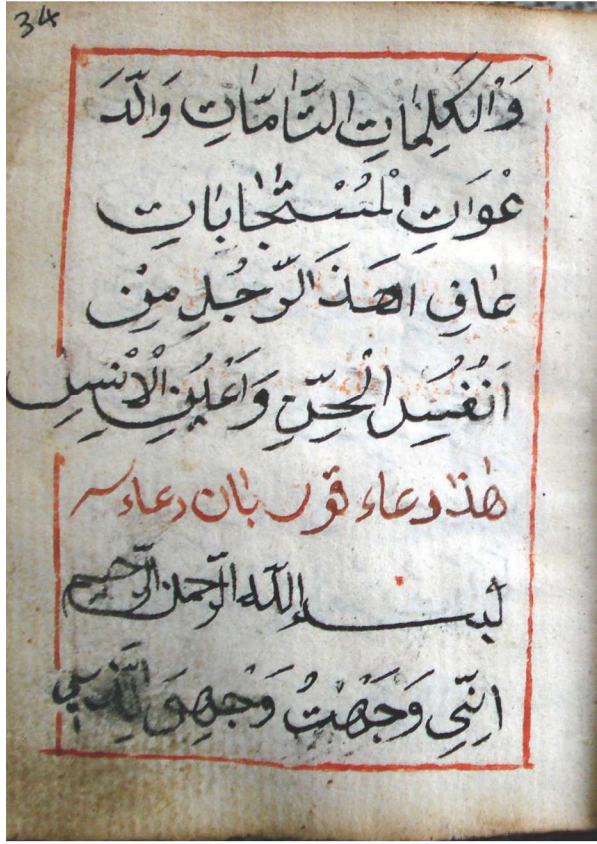 34
وَالْكَلِمٰاتِ التَّامّٰاتِ وَالدَّ
عْوَاتِ الْمُسْتَجٰابٰاتِ
عٰافِ اهَذَ الرَّجُلِ مِنْ
اَنْفُسِ الْجِنِّ وَاَعْيُنِ الْاِنْسِ
هٰذا دعاء قور بان دعاء سه
بسم الله الرّحمن الرّحيم
اِنّي وَجَهْتُ وَجْهِوَ لِلَّذي